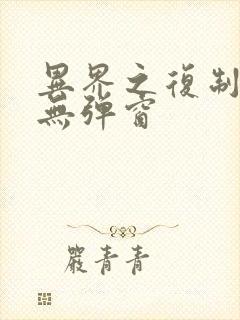 異界之復制
無彈窗
嚴青青